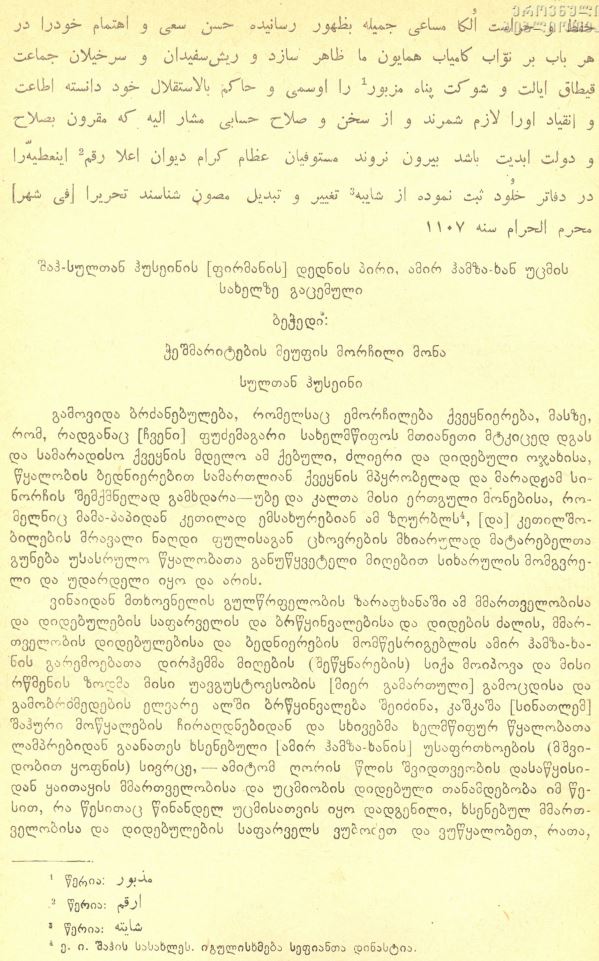 ეროვნული
ბიბლიოთეკა
حفظ و حراست اُلکا مساعی جمیله بظهور رسانیده حسن سعی و اهتمام خودرا در
هر باب بر نوّاب کامیاب همایون ما ظاهر سازد و ریش‌سفیدان و سرخیلان جماعت
قیطاق ایالت و شوکت پناه مزبور¹ را اوسمی و حاکم بالاستقلال خود دانسته اطاعت
و انقیاد اورا لازم شمرند و از سخن و صلاح حسابی مشار الیه که مقرون بصلاح
و دولت ابدیت باشد بیرون نروند مستوفیان عظام کرام دیوان اعلا رقم² اینعطیّه‌را
در دفاتر خلود ثبت نموده از شایبه³ تغییر و تبدیل مصون شناسند تحریرا [فی شهر]
محرم الحرام سنه ۱۱۰۷
შაჰ-სულთან ჰუსეინის [ფირმანის] დედნის პირი, ამირ ჰამზა-ხან უცმის
სახელზე გაცემული
ბეჭედი:
ჭეშმარიტების მეუფის მორჩილი მონა
სულთან ჰუსეინი
გამოვიდა ბრძანებულება, რომელსაც ემორჩილება ქვეყნიერება, მასზე,
რომ, რადგანაც [ჩვენი] ფუძემაგარი სახელმწიფოს მთიანეთი მტკიცედ დგას
და სამარადისო ქვეყნის მდელო ამ ქებული, ძლიერი და დიდებული ოჯახისა,
წყალობის ბედნიერებით სამართლიან ქვეყნის მპყრობელად და მარადჟამ სი-
ნორჩის შემქმნელად გამხდარა—უბე და კალთა მისი ერთგული მონებისა, რო-
მელნიც მამა-პაპიდან კეთილად ემსახურებიან ამ ზღურბლს⁴, [და] კეთილშო-
ბილების მრავალი ნაღდი ფულისაგან ცხოვრების მხიარულად მატარებელთა
გუნება უსასრულო წყალობათა განუწყვეტელი მიღებით სიხარულის მომგვრე-
ლი და უდარდელი იყო და არის.
ვინაიდან მთხოვნელის გულწრფელობის ზარაფხანაში ამ მმართველობისა
და დიდებულების საფარველის და ბრწყინვალებისა და დიდების ძალის, მმარ-
თველობის დიდებულებისა და ბედნიერების მომწესრიგებლის ამირ ჰამზა-ხა-
ნის გარემოებათა დირჰემმა მიღების (შეწყნარების) სიქა მოიპოვა და მისი
რწმენის ზოდმა მისი უავგუსტოესობის [მიერ გამართული] გამოცდისა და
გამობრძმედების ელვარე ალში ბრწყინვალება შეიძინა, კაშკაშა [სინათლემ]
შაჰური მოწყალების ჩირაღდნებიდან და სხივებმა ხელმწიფურ წყალობათა
ლამპრებიდან გაანათეს ხსენებული [ამირ ჰამზა-ხანის] უსაფრთხოების (მშვი-
დობით ყოფნის) სივრცე, — ამიტომ ღორის წლის შვიდთვეობის დასაწყისი-
დან ყაითაყის მმართველობისა და უცმიობის დიდებული თანამდებობა იმ წე-
სით, რა წესითაც წინანდელ უცმისათვის იყო დადგენილი, ხსენებულ მმართ-
ველობისა და დიდებულების საფარველს ვუბოძეთ და ვუწყალობეთ, რათა,
¹ წერია: مذبور
² წერია: ارقم
³ წერია: شایته
⁴ ე. ი. შაჰის სასახლეს. იგულისხმება სეფიანთა დინასტია.